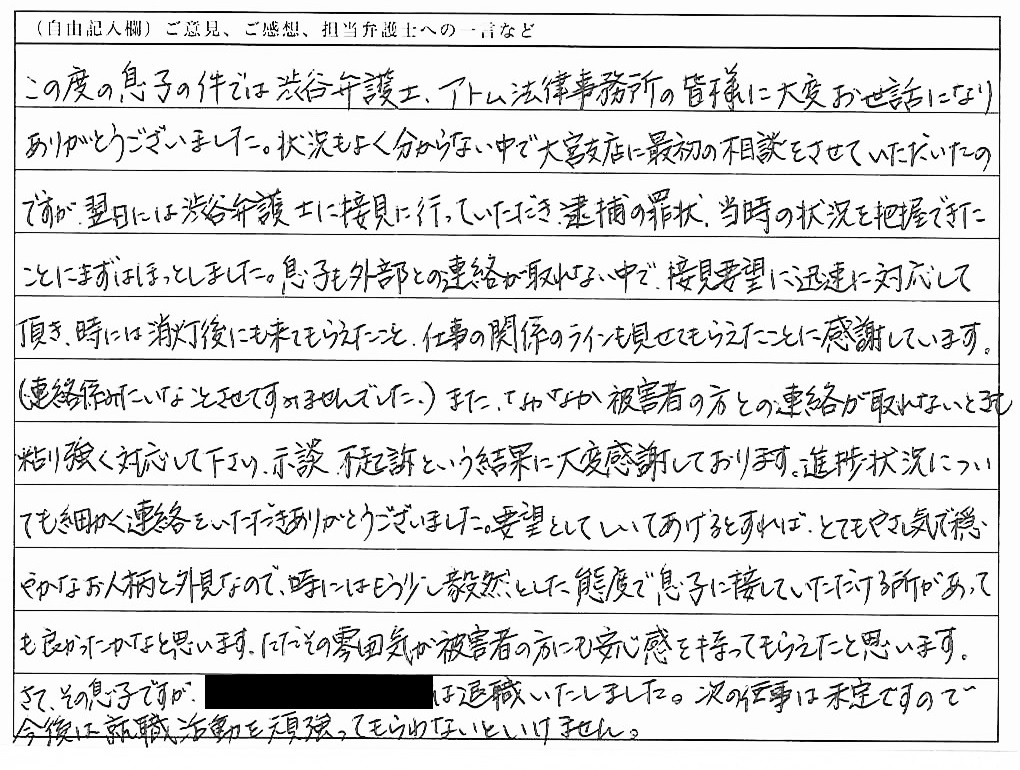 （自由記入欄）ご意見、ご感想、担当弁護士への一言など
この度の息子の件では渋谷弁護士、アトム法律事務所の皆様に大変お世話になり
ありがとうございました。状況もよく分からない中で大宮支店に最初の相談をさせていただいたの
ですが、翌日には渋谷弁護士に接見に行っていただき、逮捕の罪状、当時の状況を把握できた
ことにまずはほっとしました。息子も外部との連絡が取れない中で、接見要望に迅速に対応して
頂き、時には消灯後にも来てもらえたこと、仕事の関係のラインも見せてもらえたことに感謝しています。
(連絡係みたいなことさせてすみませんでした。) また、なかなか被害者の方との連絡が取れないときも
粘り強く対応して下さり、示談、不起訴という結果に大変感謝しております。進捗状況につい
ても細かく連絡をいただきありがとうございました。要望としてしいてあげるとすれば、とてもやさし気で穏
やかなお人柄と外見なので、時にはもう少し毅然とした態度で息子に接していただける所があって
も良かったかなと思います。ただその雰囲気が被害者の方にも安心感を持ってもらえたと思います。
さて、その息子ですが、は退職いたしました。次の仕事は未定ですので
今後は就職活動を頑張ってもらわないといけません。